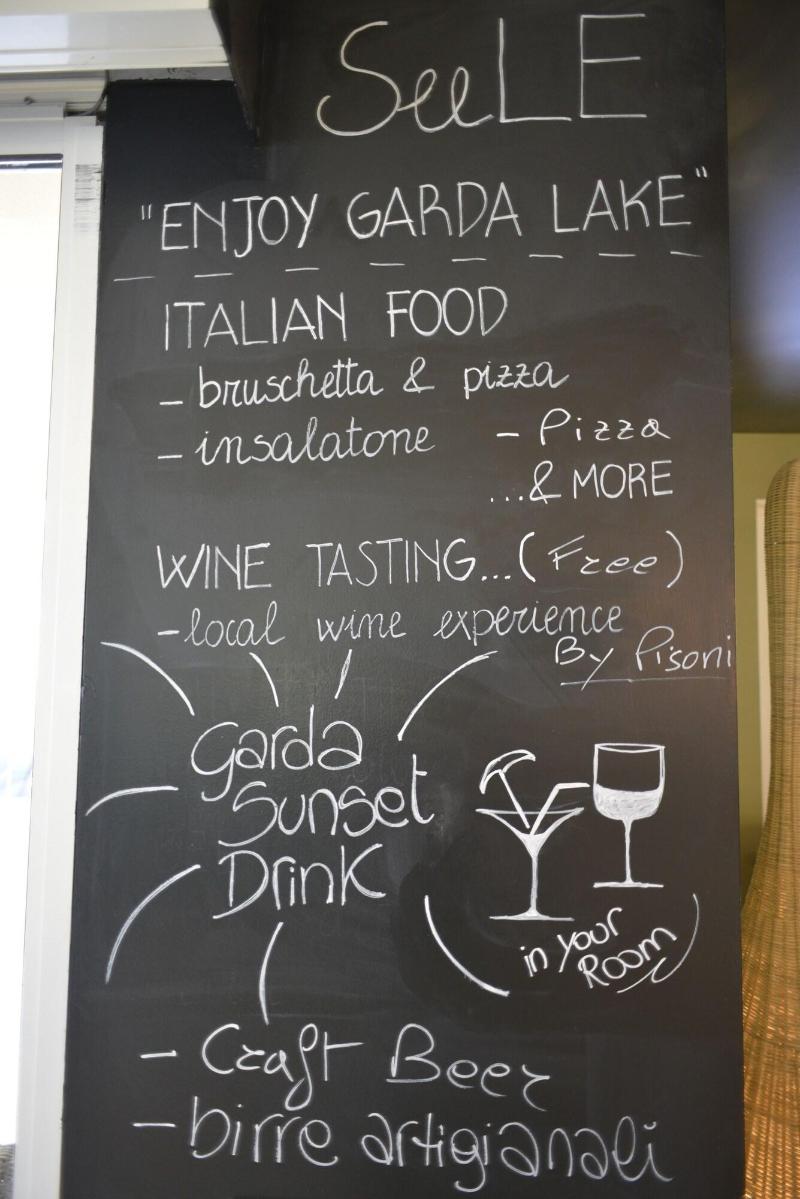 SeeLE
"ENJOY GARDA LAKE"
ITALIAN FOOD
- bruschetta & pizza
- insalatone - Pizza
...& MORE
WINE TASTING...(Free)
- local wine experience
By Pisoni
Garda
Sunset
Drink
in your
Room
- Craft Beer
- birre artigianali